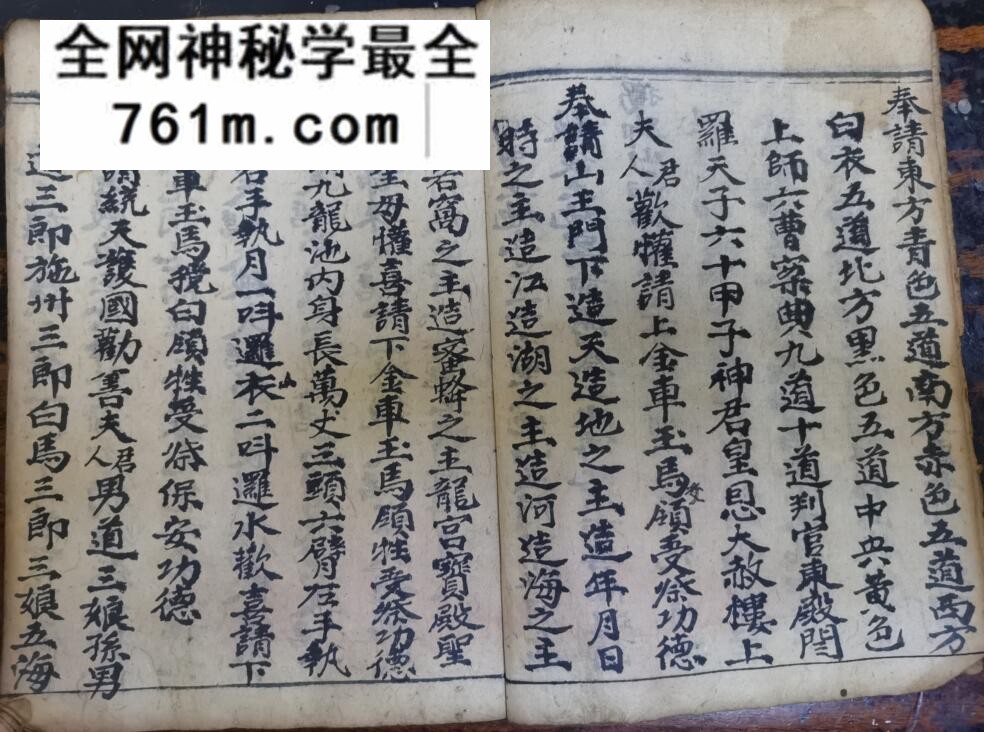 全网神秘学最全
761m.com
奉請東方青色五道南方赤色五道西方
白衣五道北方黑色五道中央黄色
上師六曹案典九道十道判官東殿閂
羅天子六十甲子神君皇恩大赦樓上
夫君人歡懽請上金車玉馬領受祭功德
奉請山王門下造天造地之主造年月日
時之主造江造湖之主造河造海之主
窩之主造蜜蜂之主龍宮寶殿聖
母懽喜請下金車玉馬領牲受祭功德
九龍池内身長萬丈三頭六臂左手執
手執月一呌邏衣二呌邏水歡喜請下
車玉馬領牲受祭保安功德
請繞天護國勸善夫君人男道三娘孫男
三郎施州三郎白馬三郎三娘五海